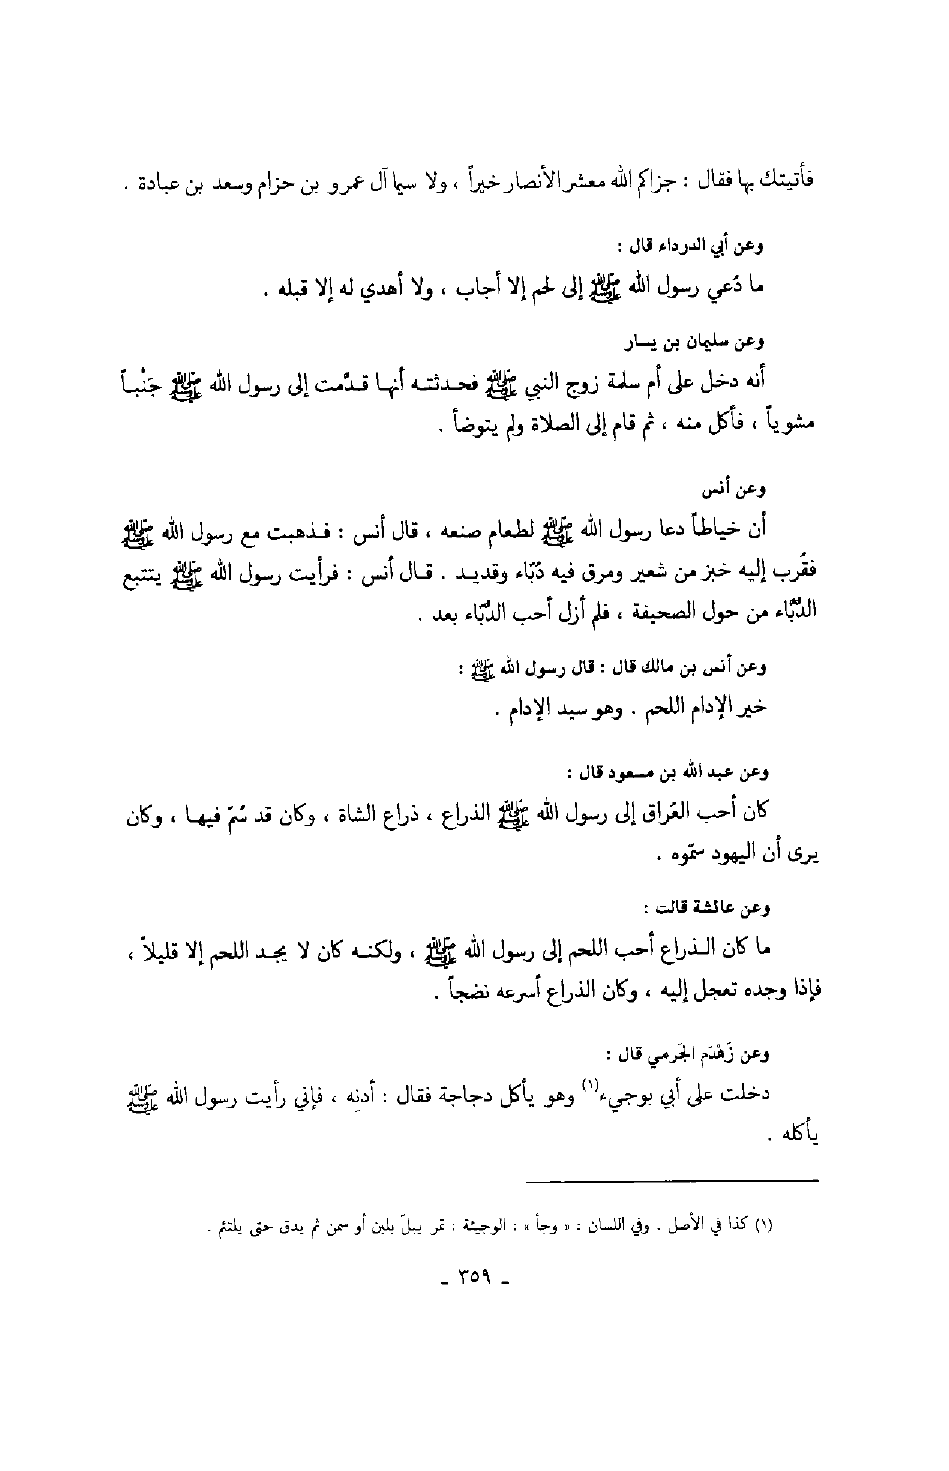 فأتيتك بها فقال : جزاكم الله معشر الأنصار خيراً ، ولا سيما آل عمرو بن حزام وسعد بن عبادة .
وعن أبي الدرداء قال :
ما دُعي رسول الله ﷺ إلى لحم إلا أجاب ، ولا أهدي له إلا قبله .
وعن سليمان بن يسار
أنه دخل على أم سلمة زوج النبي ﷺ فحدثته أنها قدّمت إلى رسول الله ﷺ جَنْباً
مشوياً ، فأكل منه ، ثم قام إلى الصلاة ولم يتوضأ .
وعن أنس
أن خياطاً دعا رسول الله ﷺ لطعام صنعه ، قال أنس : فذهبت مع رسول الله ﷺ
فقُرب إليه خبز من شعير ومرق فيه دُبّاء وقديد . قال أنس : فرأيت رسول الله ﷺ يتتبع
الدُّبّاء من حول الصحيفة ، فلم أزل أحب الدُّبّاء بعد .
وعن أنس بن مالك قال : قال رسول الله ﷺ :
خير الإدام اللحم . وهو سيد الإدام .
وعن عبد الله بن مسعود قال :
كان أحب العُراق إلى رسول الله ﷺ الذراع ، ذراع الشاة ، وكان قد سُمّ فيها ، وكان
يرى أن اليهود سمّوه .
وعن عائشة قالت :
ما كان الذراع أحب اللحم إلى رسول الله ﷺ ، ولكنه كان لا يجد اللحم إلا قليلاً ،
فإذا وجده تعجل إليه ، وكان الذراع أسرعه نضجاً .
وعن زَهْدَم الجَرمي قال :
دخلت على أبي بوجيء(١) وهو يأكل دجاجة فقال : أدنه ، فإني رأيت رسول الله ﷺ
يأكله .
(١) كذا في الأصل . وفي اللسان : « وجأ » : الوجيئة : تمر يبلّ بلبن أو سمن ثم يدق حتى يلتئم .
- ٣٥٩ -